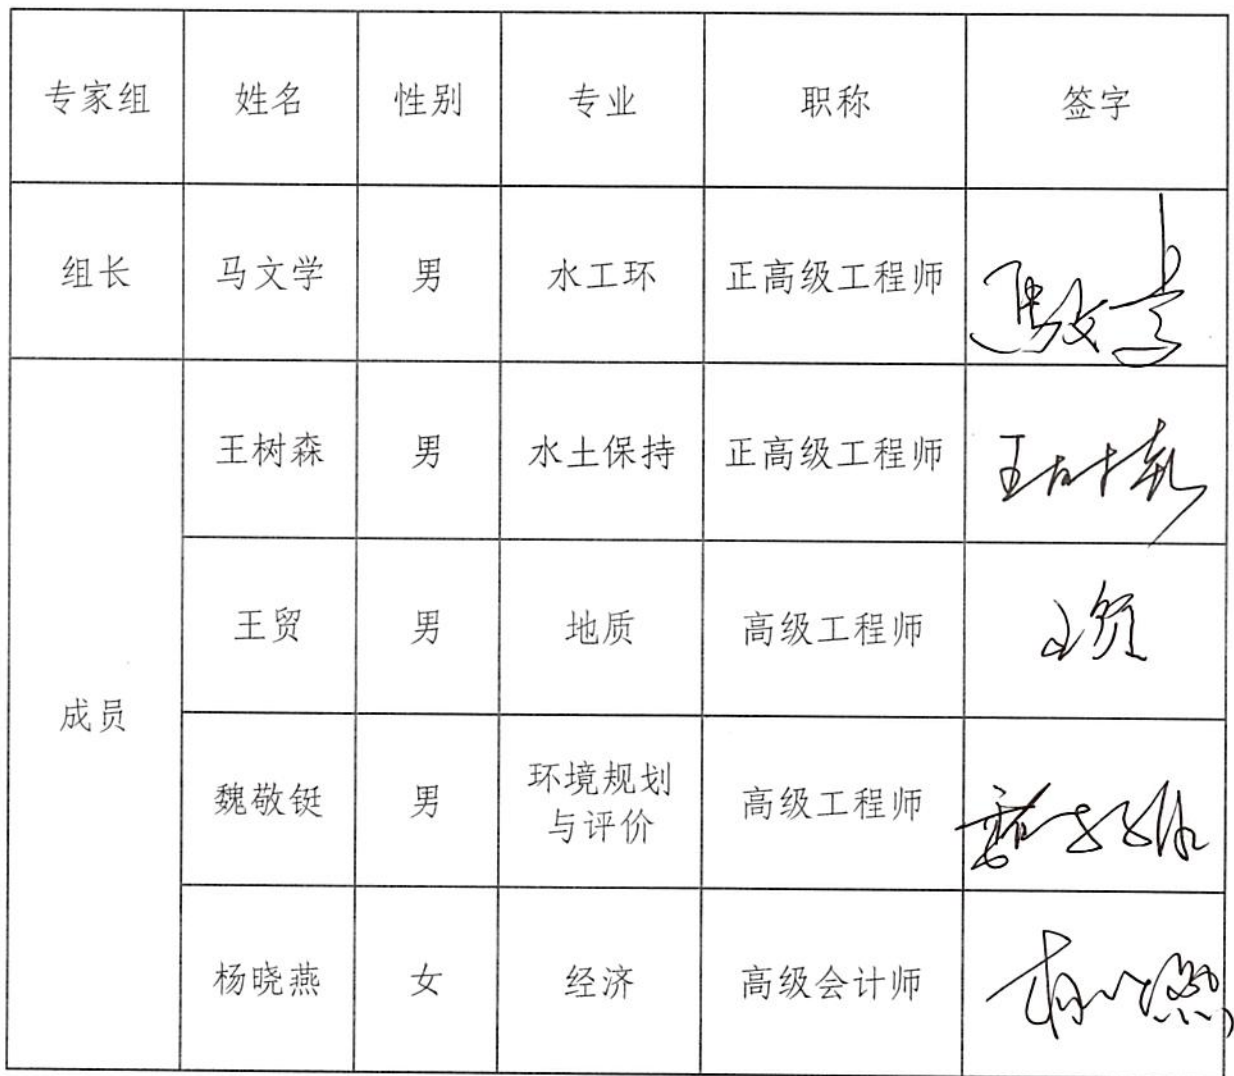 专家组 姓名 性别 专业 职称 签字
组长 马文学 男 水工环 正高级工程师 马文学
王树森 男 水土保持 正高级工程师
王贸 男 地质 高级工程师 王贸
成员
魏敬铤 男 环境规划 高级工程师
与评价
杨晓燕 女 经济 高级会计师